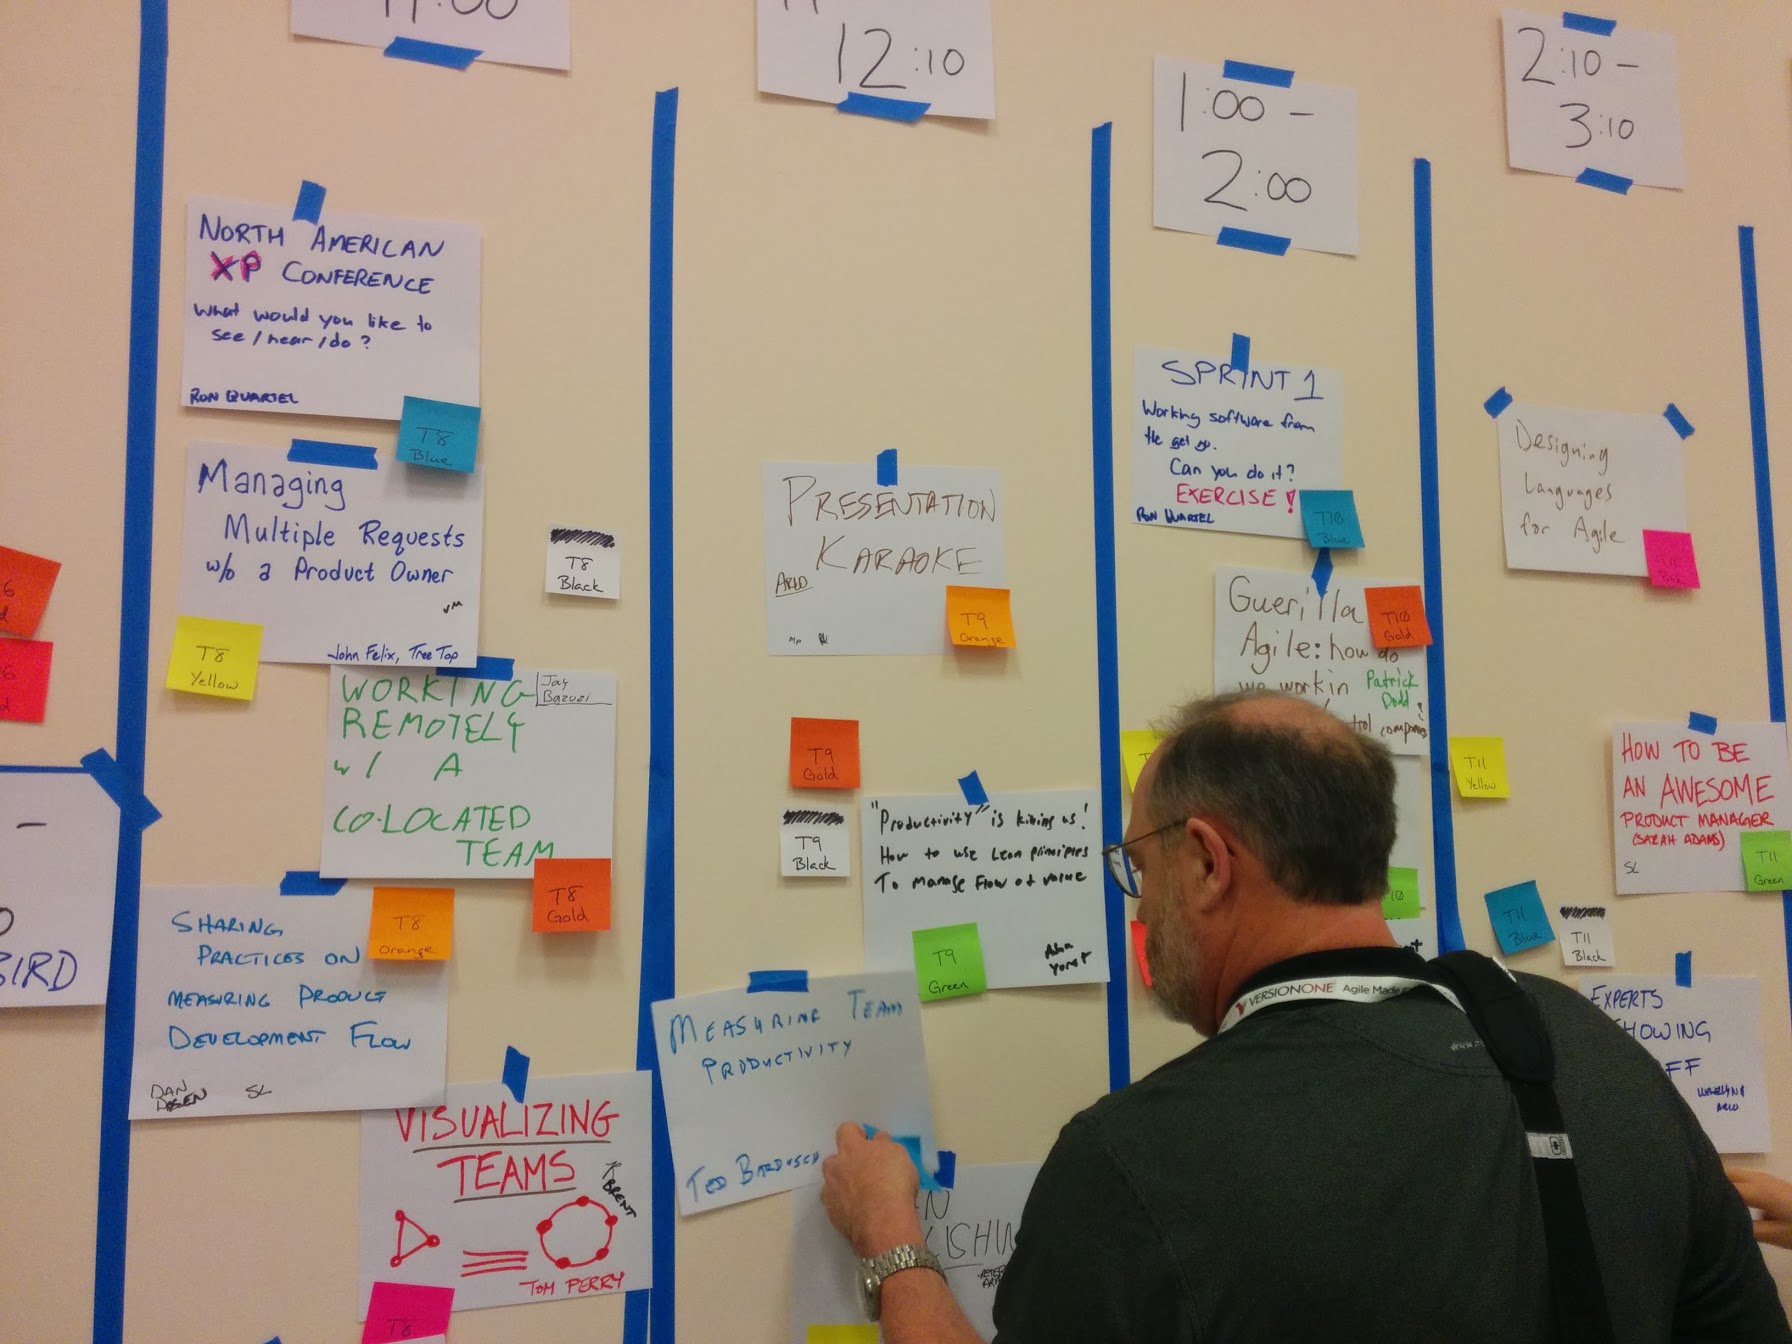 11:00
12:10
1:00 -
2:00
2:10 -
3:10
NORTH AMERICAN
XP CONFERENCE
What would you like to
see/hear/do?
RON QUARTEL
T8
Blue
Managing
Multiple Requests
w/o a Product Owner
John Felix, Tree Top
T8
Yellow
T8
Black
WORKING
REMOTELY
w/ A
CO-LOCATED
TEAM
Jay
Bazuzi
T8
Gold
SHARING
PRACTICES ON
MEASURING PRODUCT
DEVELOPMENT FLOW
DAN
SL
T8
Orange
VISUALIZING
TEAMS
BRENT
TOM PERRY
T8
BIRD
PRESENTATION
KARAOKE
ARLO
T9
Orange
T9
Gold
T9
Black
"Productivity" is killing us!
How to use Lean principles
To manage flow of value
T9
Green
MEASURING TEAM
PRODUCTIVITY
TED BARDUSCH
SPRINT 1
Working software from
the get go.
Can you do it?
EXERCISE!
RON QUARTEL
T10
Blue
Guerilla
Agile: how do
we work in
Patrick
Dodd
T10
Gold
Designing
Languages
for Agile
T11
Pink
T11
Yellow
HOW TO BE
AN AWESOME
PRODUCT MANAGER
(SARAH ADAMS)
SL
T11
Green
T11
Blue
T11
Black
EXPERTS
HOWING
FF
LLEWELLYN &
ARLO
VERSIONONE Agile Made